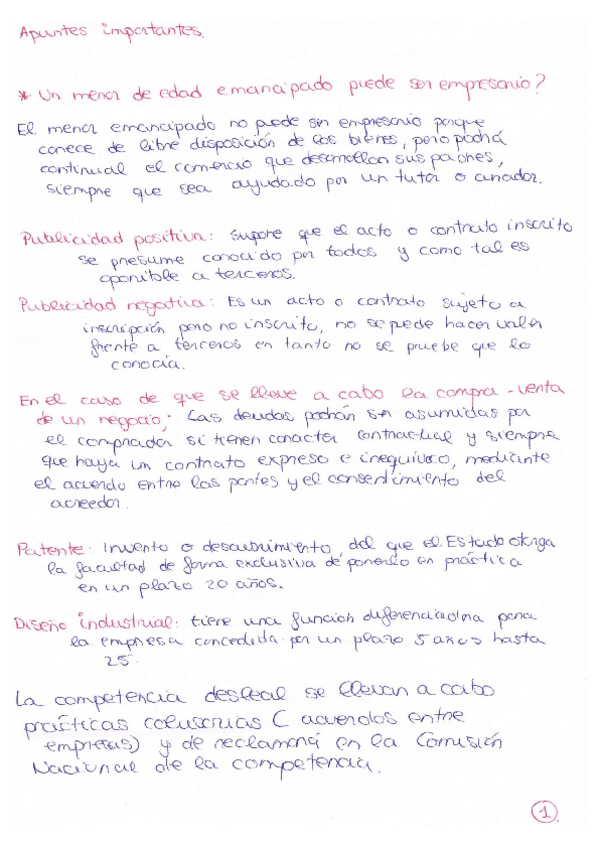 Apuntes importantes.
* Un menor de edad emancipado puede ser empresario?
El menor emancipado no puede ser empresario porque
carece de libre disposición de los bienes, pero podrá
continual el comercio que desarrollan sus padres,
siempre que sea ayudado por un tutor o curador.
Publicidad positiva: supone que el acto o contrato inscrito
se presume conocido por todos y como tal es
oponible a terceros.
Publicidad negativa: Es un acto o contrato sujeto a
inscripción pero no inscrito, no se puede hacer valer
frente a terceros en tanto no se pruebe que lo
conocía.
En el caso de que se lleve a cabo la compra-venta
de un negocio; Las deudas podrán ser asumidas por
el comprador si tienen caracter contractual y siempre
que haya un contrato expreso e inequívoco, mediante
el acuerdo entre las partes y el consentimiento del
acreedor.
Patente: Invento o descubrimiento, del que el Estado otorga
la facultad de forma exclusiva de ponerlo en práctica
en un plazo 20 años.
Diseño industrial: tiene una función diferenciadora para
la empresa concedida por un plazo 5 años hasta
25.
La competencia desleal se llevan a cabo
prácticas colusorias ( acuerdos entre
empresas) y de reclamará en la Comisión
Nacional de la competencia.
1